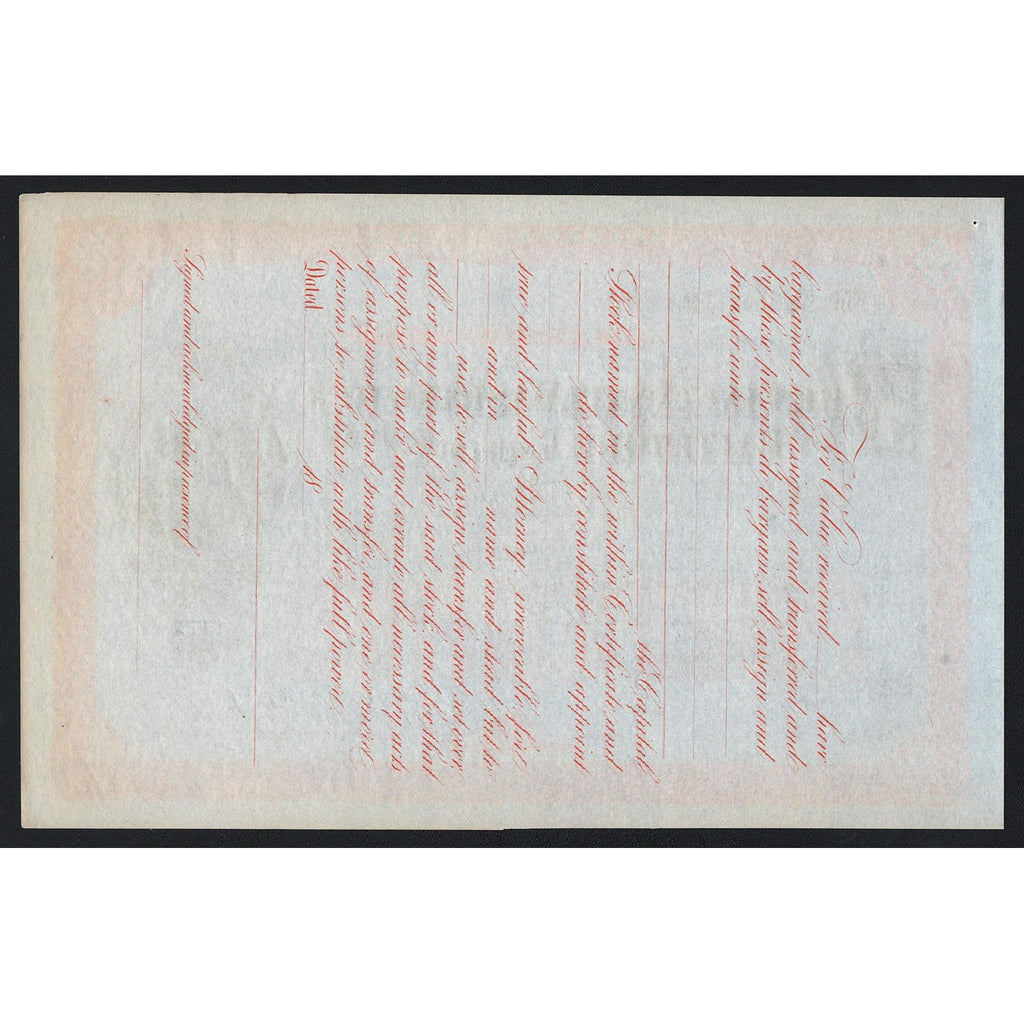 For Value received have
bargained, sold, assigned and transferred, and
by these presents do bargain, sell, assign and
transfer unto
the Capital
Stock named in the within Certificate and
do hereby constitute and appoint
true and lawful Attorney irrevocable for
and in name and stead but to
use to sell, assign, transfer and set over
all or any part of the said stock and for that
purpose to make and execute all necessary acts
of assignment and transfer and one or more
persons to substitute with like full power.
Dated 18
Signed and acknowledged in presence of